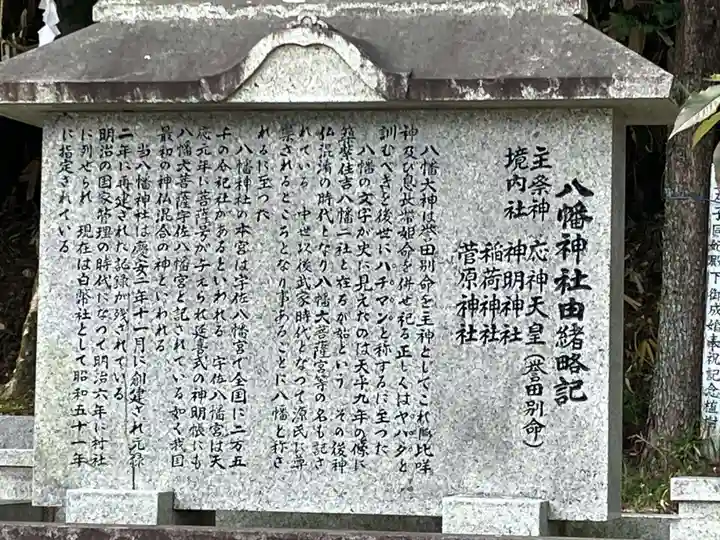 八幡神社由緒略記
主祭神 応神天皇(誉田別命)
境内社 神明神社
稲荷神社
菅原神社
八幡大神は誉田別命を主神としてこれに比咩
神及び息長帯姫命を併せ祀る正しくはヤハタと
訓むべきを後世にハチマンと称するに至った
八幡の文字が史に見えたのは天平九年の條に
筑紫住吉八幡二社と在るが始という その後神
仏混淆の時代となり八幡大菩薩宮等の名も記さ
れている 中世以後武家時代となって源氏に尊
崇されるところとなり事あるごとに八幡と称さ
れるに至った
八幡神社の本宮は宇佐八幡宮で全国に二万五
千の合祀社があるといわれる 宇佐八幡宮は天
応元年に菩薩号が与えられ延喜式の神明帳にも
八幡大菩薩宇佐八幡宮と記されている如く我国
最初の神仏混合の神といわれる
当八幡神社は慶安二年十一月に創建され元禄
二年に再建された記録が残されている
明治の国家管理の時代になって明治六年に村社
に列せられ 現在は白幣社として昭和五十一年
に指定されている
殿下御成婚奉祝記念植樹